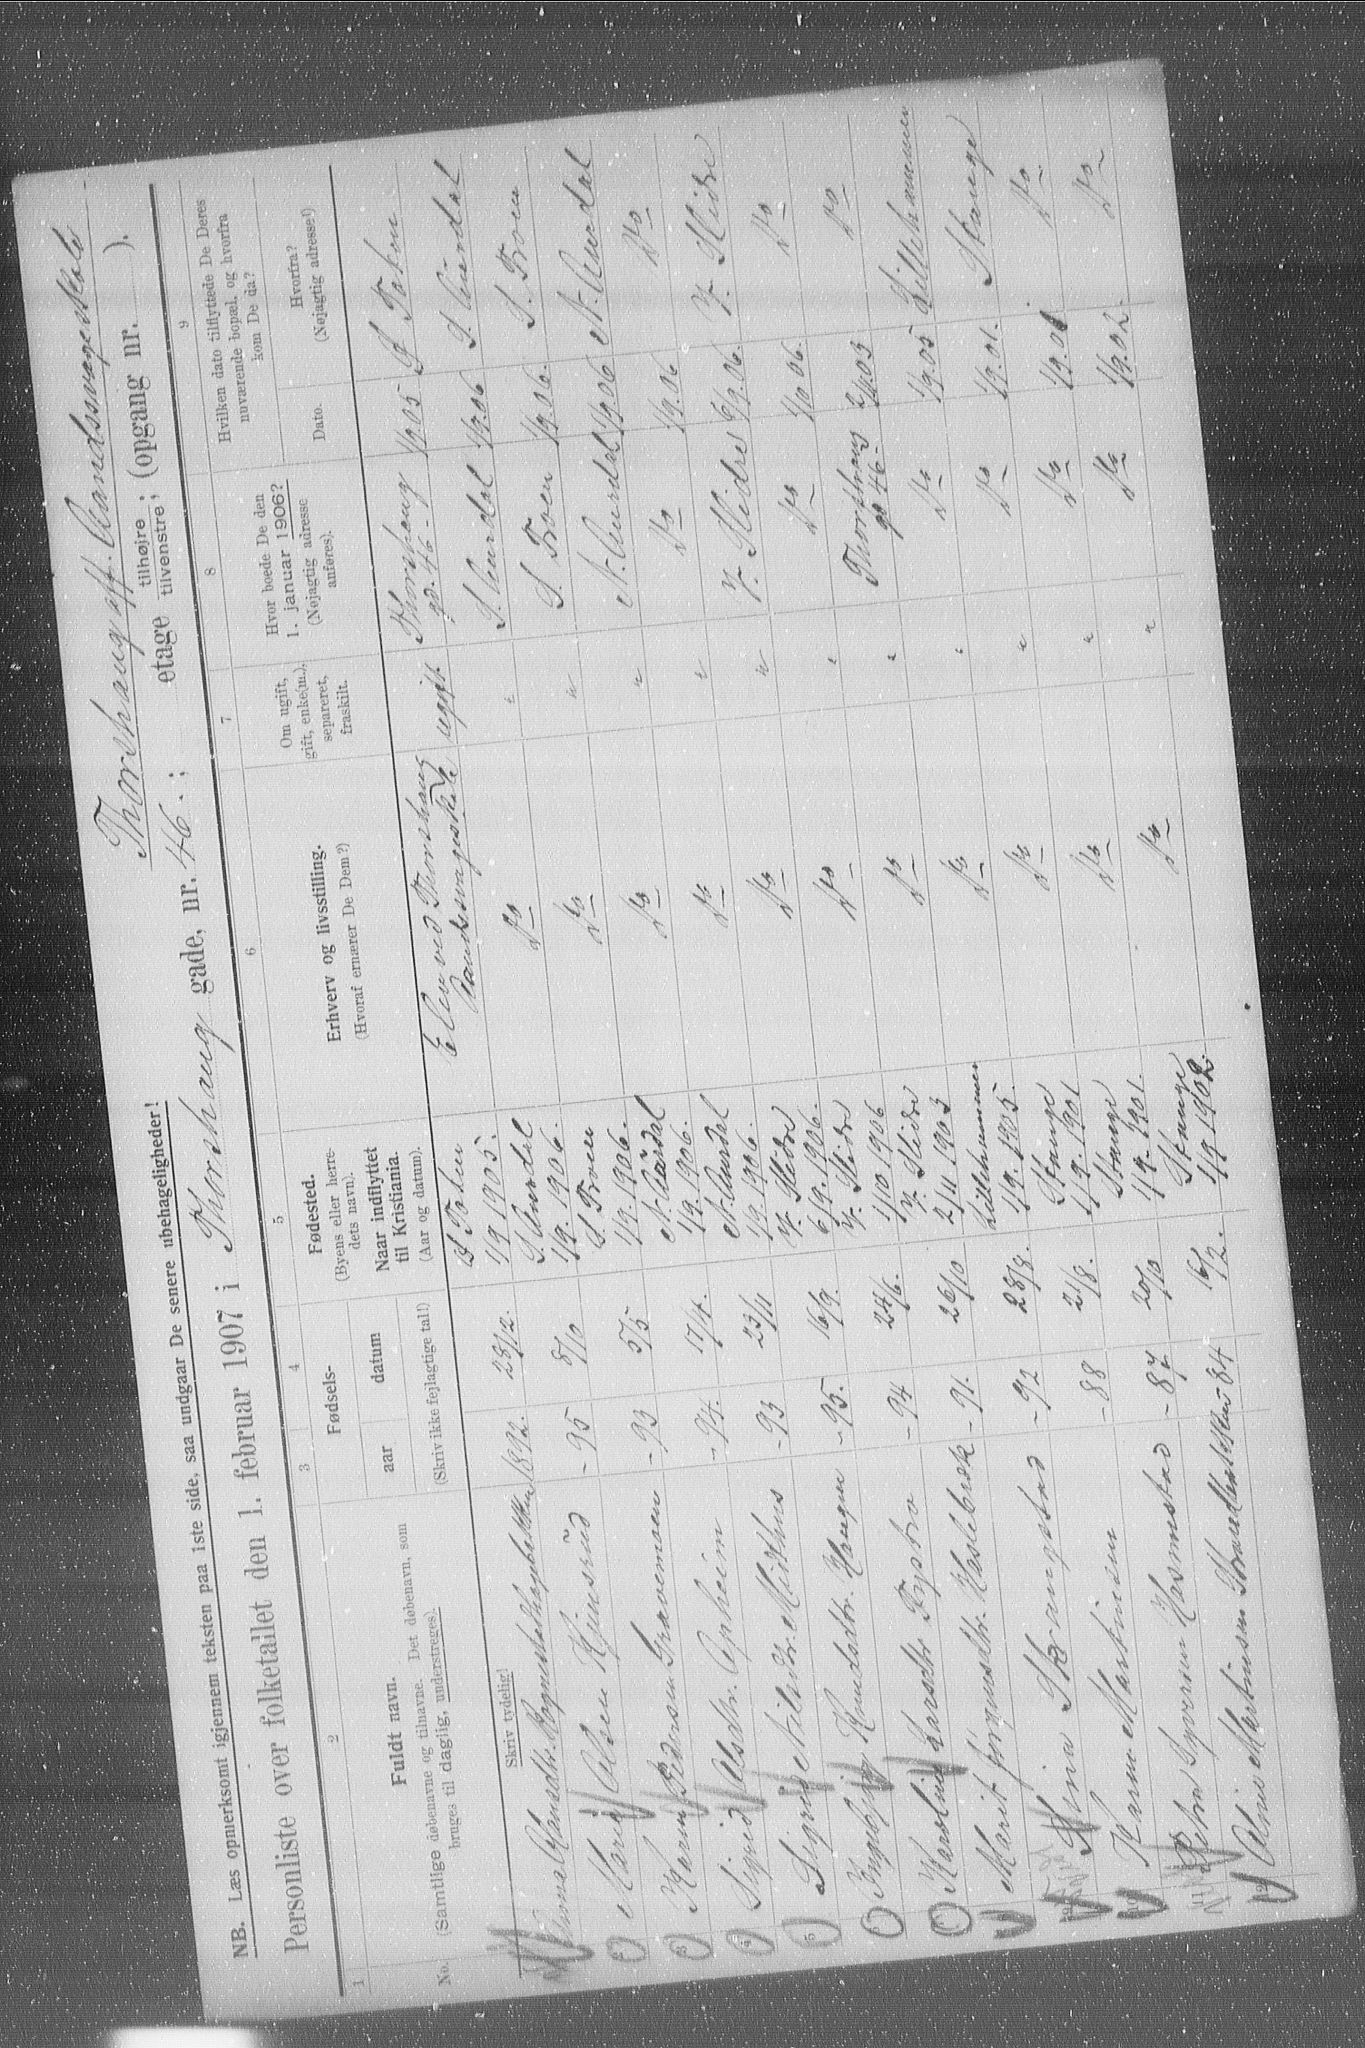 NB. Læs opmerksomt igjennem teksten paa 1ste side, saa undgaar De senere ubehageligheder!
Thorshaug off. Aandssvageskole
Personliste over folketallet den 1. februar 1907 i Thorshaug gade, nr. 46.; etage tilhøjre; tilvenstre; (opgang nr. ).
1 2 3 4 5 6 7 8 9
No.
Fuldt navn.
(Samtlige døbenavne og tilnavne. Det døbenavn, som
bruges til daglig, understreges).
Fødsels-
aar datum
(Skriv ikke fejlagtige tal!)
Fødested.
(Byens eller herre-
dets navn).
Naar indflyttet
til Kristiania.
(Aar og datum).
Erhverv og livsstilling.
(Hvoraf ernærer De Dem?)
Om ugift,
gift, enke(m.),
separeret,
fraskilt.
Hvor boede De den
1. januar 1906?
(Nøjagtig adresse
anføres).
Hvilken dato tilflyttede De Deres
nuværende bopæl, og hvorfra
kom De da?
Dato.
Hvorfra?
(Nøjagtig adresse!)
Skriv tydelig!
1892. 23/12. 1/9 1905. Elev ved Thorshaug Aandssvageskole ugift Thorshaug gd. 46 1/9 05
2 Marie Olsen - 95 8/10 S. Aurdal 1/9. 1906. Do " S. Aurdal 1/9.06 S. Aurdal
3 Karen Pedersen - 93 5/5 S. Froen 1/9. 1906. Do " S. Froen 1/9.06. S. Froen
4 Sigrid Olsdtr. Opheim - 94. 17/4. N. Aurdal 1/9.1906. Do " N. Aurdal 1/9.06 N. Aurdal
5 Sigrid Nilsdtr. - 93 23/11 N. Aurdal 1/9.1906. Do " Do 1/9.06 Do
Ingebjørg Knudsdtr. Haugen - 95. 16/9. V. Slidre 6/9.1906. Do " V. Slidre 6/9.06. V. Slidre
Karoline - 94 24/6. V. Slidre 1/10 1906 Do " Do 1/10 06. Do
Marit - 91. 26/10 V. Slidre 2/11 1903 Do " Thorshaug gd 46- 03 Do
Stina Skrangstad - 92 28/8. Lillehammer 1/9. 1905. Do " Do 1/9.05 Lillehammer
10 Karen Martinsen - 88 21/8. Stange 1/9.1901 Do " Do 1/9.01. Stange
11 Petra Syversen - 87 20/10 Stange 1/9.1901. Do " Do 1/9.01 Do
12 Martinsen - 84 16/2. Stange 1/9 1902. Do " Do 1/9.02. Do